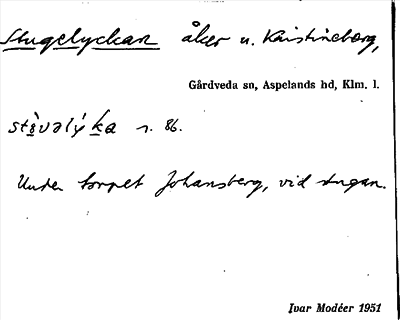 Stugelyckan åker u. Kristineberg,
Gårdveda sn, Aspelands hd, Klm. l.
s. 86.
Under torpet Johansberg, vid stugan.
Ivar Modéer 1951